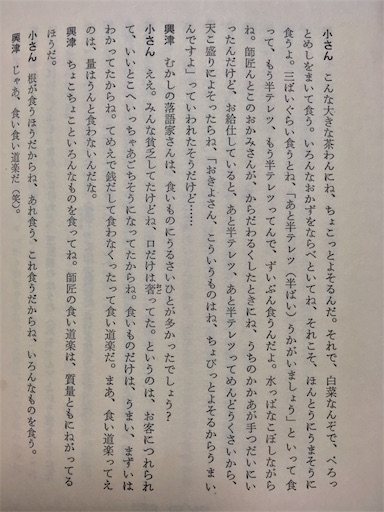 小さん　こんな大きな茶わんにね、ちょこっとよそるんだ。それで、白菜なんぞで、ぺろっ
とめしをまいて食う。いろんなおかずをならべといてね、それこそ、ほんとうにうまそうに
食うよ。三ばいぐらい食うとね、「あと半テレツ（半ばい）うかがいましょう」といって食
って、もう半テレツ、もう半テレツってんで、ずいぶん食うんだよ。水っぱなこぼしながら
ね。師匠んとこのおかみさんが、からだわるくしたときにね、うちのかかあが手つだいにい
ったんだけど、お給仕していると、あと半テレツ、あと半テレツってめんどうくさいから、
天こ盛りによそったらね、「おきよさん、こういうものはね、ちょびっとよそるからうまい
んですよ」っていわれたそうだけど……
興津　むかしの落語家さんは、食いものにうるさいひとが多かったでしょう？
小さん　ええ。みんな貧乏してたけどね、口だけは奢ってた。というのは、お客につれられ
て、いいとこへいっちゃあごちそうになってたからね。食いものだけは、うまい、まずいは
わかってたからね。てめえで銭だして食わなくったって食い道楽だ。まあ、食い道楽ってえ
のは、量はうんと食わないんだな。
興津　ちょこちょこといろんなものを食ってね。師匠の食い道楽は、質量ともにねがってる
ほうだ。
小さん　根が食うほうだからね、あれ食う、これ食うだからね、いろんなものを食う。
興津　じゃあ、食い食い道楽だ（笑）。